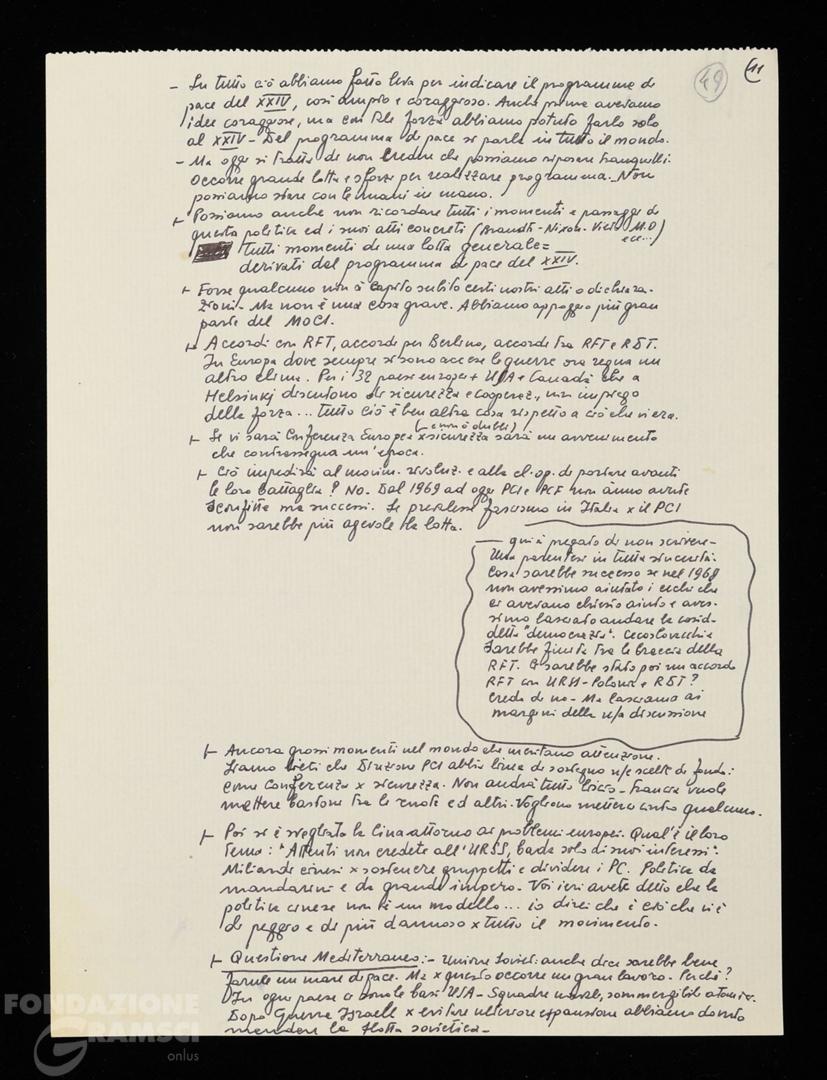 49
11
- Su tutto ciò abbiamo fatto leva per indicare il programma di
pace del XXIV, così ampio e coraggioso. Anche prima avevamo
idee coraggiose, ma con tale forza abbiamo potuto farlo solo
al XXIV - Del programma di pace si parla in tutto il mondo.
- Ma oggi si tratta di non credere che possiamo riposare tranquilli.
Occorre grande lotta e sforzi per realizzare programma. Non
possiamo stare con le mani in mano.
+ Possiamo anche non ricordare tutti i momenti e passaggi di
questa politica ed i suoi atti concreti (Brandt - Nixon - Viet - M.O
ecc...)
tutti momenti di una lotta generale =
derivati dal programma di pace del XXIV.
+ Forse qualcuno non à capito subito certi nostri atti o dichiara-
zioni - Ma non è una cosa grave. Abbiamo appoggio più gran
parte del MOCI.
+ Accordi con RFT, accordi per Berlino, accordi tra RFT e RDT.
In Europa dove sempre si sono accese le guerre ora regna un
altro clima. Per i 32 paesi europei + USA e Canadà che a
Helsinki discutono di sicurezza e cooperaz., non impiego
della forza... tutto ciò è ben altra cosa rispetto a ciò che v'era.
(e non è dubbi)
+ Se vi sarà Conferenza Europea x sicurezza sarà un avvenimento
che contrassegna un'epoca.
+ Ciò impedirà al movim. rivoluz. e alla cl. op. di portare avanti
le loro battaglia? No. Dal 1969 ad oggi PCI e PCF non ànno avuto
sconfitte ma successi. Se prevalesse fascismo in Italia x il PCI
non sarebbe più agevole la lotta.
— qui à pregato di non scrivere -
Una parentesi in tutta sincerità.
Cosa sarebbe successo se nel 1968
non avessimo aiutato i cechi che
ci avevano chiesto aiuto e aves-
simo lasciato andare la cosid-
detta "democrazia". Cecoslovacchia
sarebbe finita tra le braccia della
RFT. Ci sarebbe stato poi un accordo
RFT con URSS - Polonia e RDT?
Credo di no - Ma lasciamo ai
margini della n/a discussione
+ Ancora grossi momenti nel mondo che meritano attenzione.
Siamo lieti che Direzione PCI abbia linea di sostegno n/e scelte di fondo:
come Conferenza x sicurezza. Non andrà tutto liscio - Francia vuole
mettere bastone tra le ruote ed altri. Vogliono metterci contro qualcuno.
+ Poi si è svegliata la Cina attorno ai problemi europei. Qual'è il loro
tema: "Attenti non credete all'URSS, bada solo ai suoi interessi".
Miliardi cinesi x sostenere gruppetti e dividere i PC. Politica da
mandarini e da grande impero. Voi ieri avete detto che la
politica cinese non è un modello... io direi che è ciò che vi è
di peggio e di più dannoso x tutto il movimento.
+ Questione Mediterraneo: - Unione Soviet. anche dice sarebbe bene
farne un mare di pace. Ma x questo occorre un gran lavoro. Perchè?
In ogni paese ci sono le basi USA - Squadre navali, sommergibili atomici.
Dopo Guerra Israele x evitare ulteriore espansione abbiamo dovuto
mandare la flotta sovietica -
FONDAZIONE
GRAMSCI
onlus